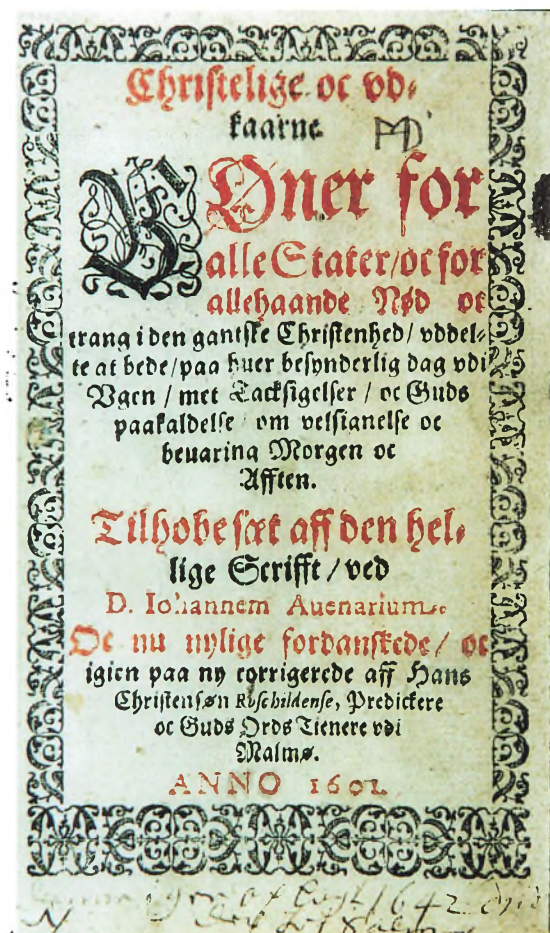 Christelige oc vd-
kaarne
BØner for
alle Stater/ oc for
allehaande Nød oc
trang i den gantske Christenhed/ vddel-
te at bede/ paa huer besynderlig dag vdi
Vgen / met Tacksigelser / oc Guds
paakaldelse om velsianelse oc
beuaring Morgen oc
Afften.
Tilhobesæt aff den hel-
lige Scrifft / ved
D. Iohannem Auenarium.
Oc nu nylige fordanskede/ oc
igien paa ny corrigerede aff Hans
Christensøn Roschildense, Predickere
oc Guds Ords Tienere vdi
Malmø.
ANNO 1601.
1642